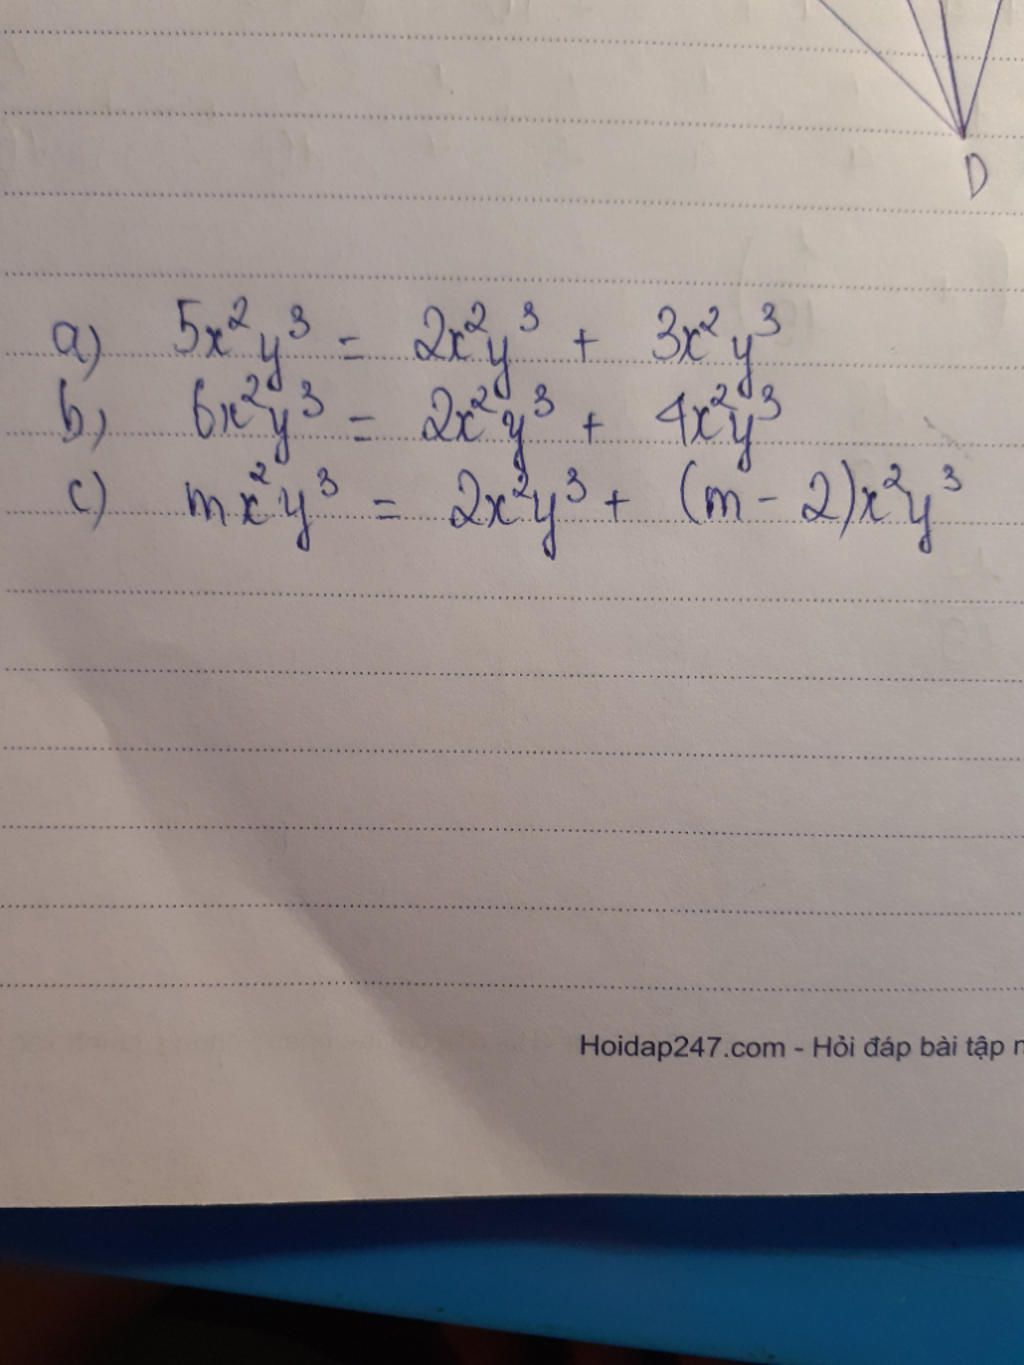 D
a) 5x²y³ = 2x²y³ + 3x²y³
b) 6x²y³ = 2x²y³ + 4x²y³
c) mx²y³ = 2x²y³ + (m - 2)x²y³
Hoidap247.com - Hỏi đáp bài tập